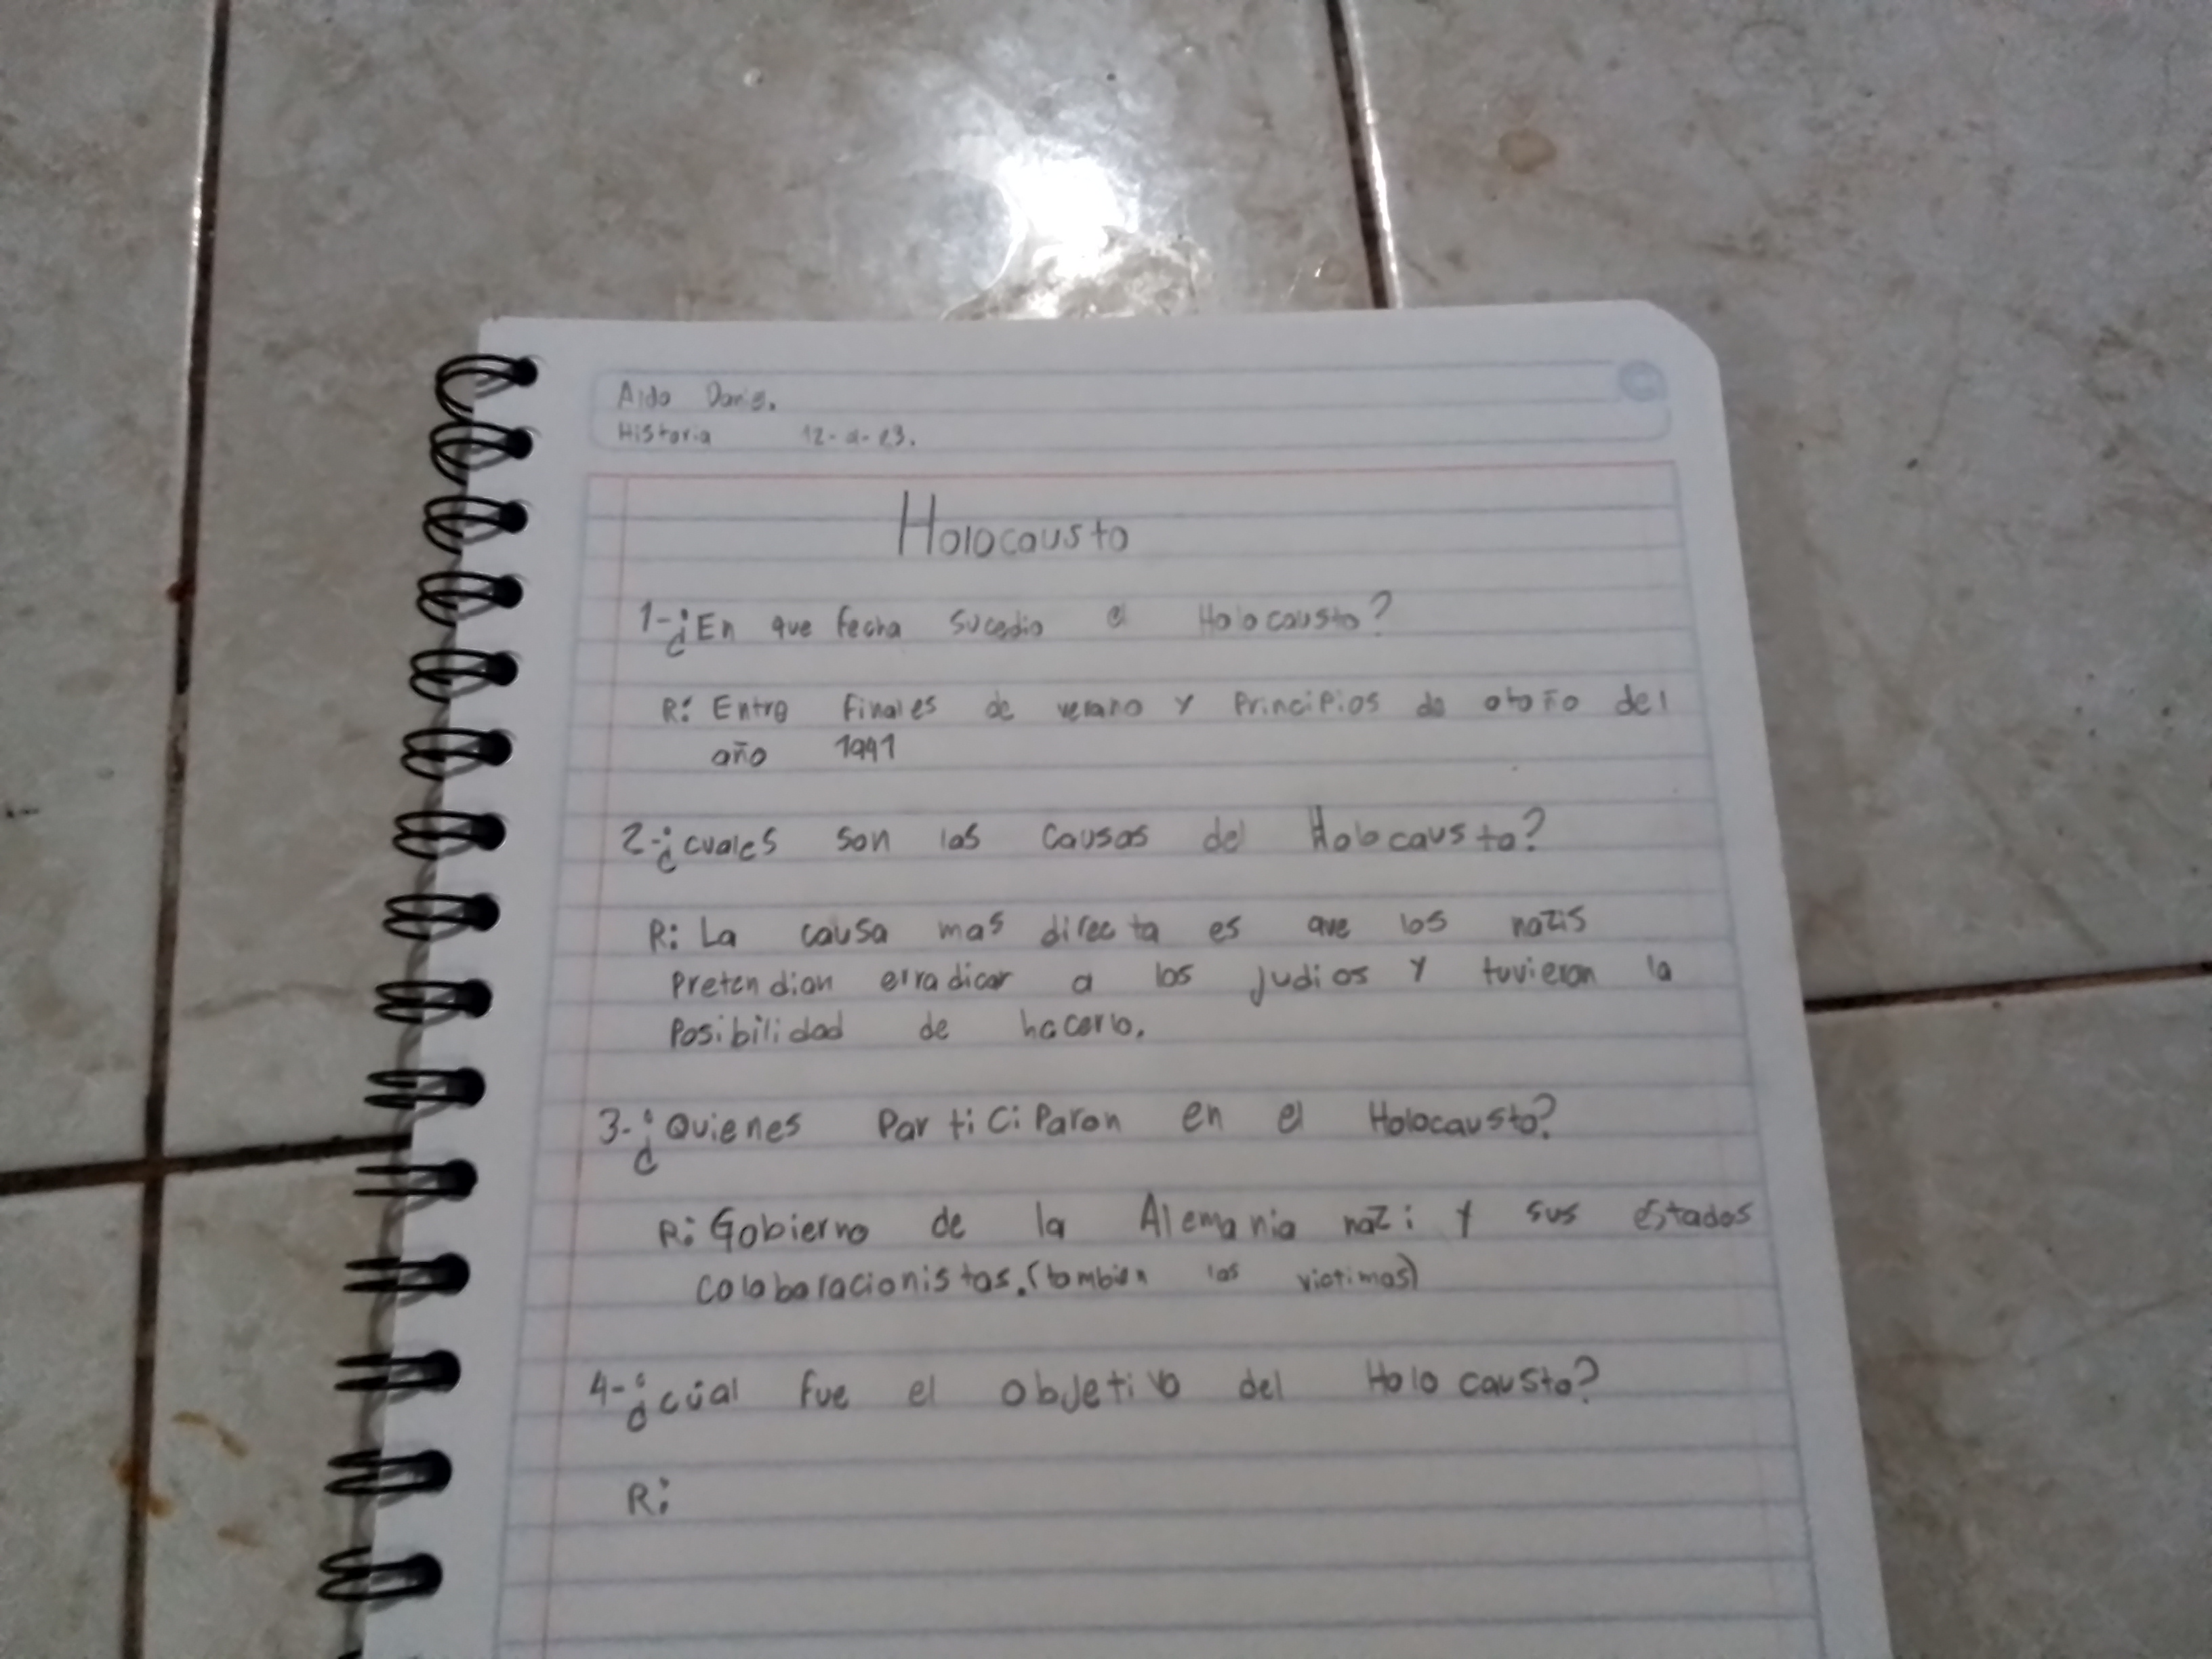 Aldo
Historia 12-
Holocausto
1-¿En que fecha sucedio el Holocausto?
R: Entre finales de verano y Principios de otoño del
año 1941
2-¿cuales son las causas del Holocausto?
R: La causa mas directa es que los nazis
Pretendian erradicar a los judios y tuvieran la
Posibilidad de hacerlo.
3-¿Quienes ParticiParon en el Holocausto?
R: Gobierno de la Alemania nazi y sus estados
colabaracionistas.(tambien las victimas)
4-¿cúal fue el objetivo del Holocausto?
R: